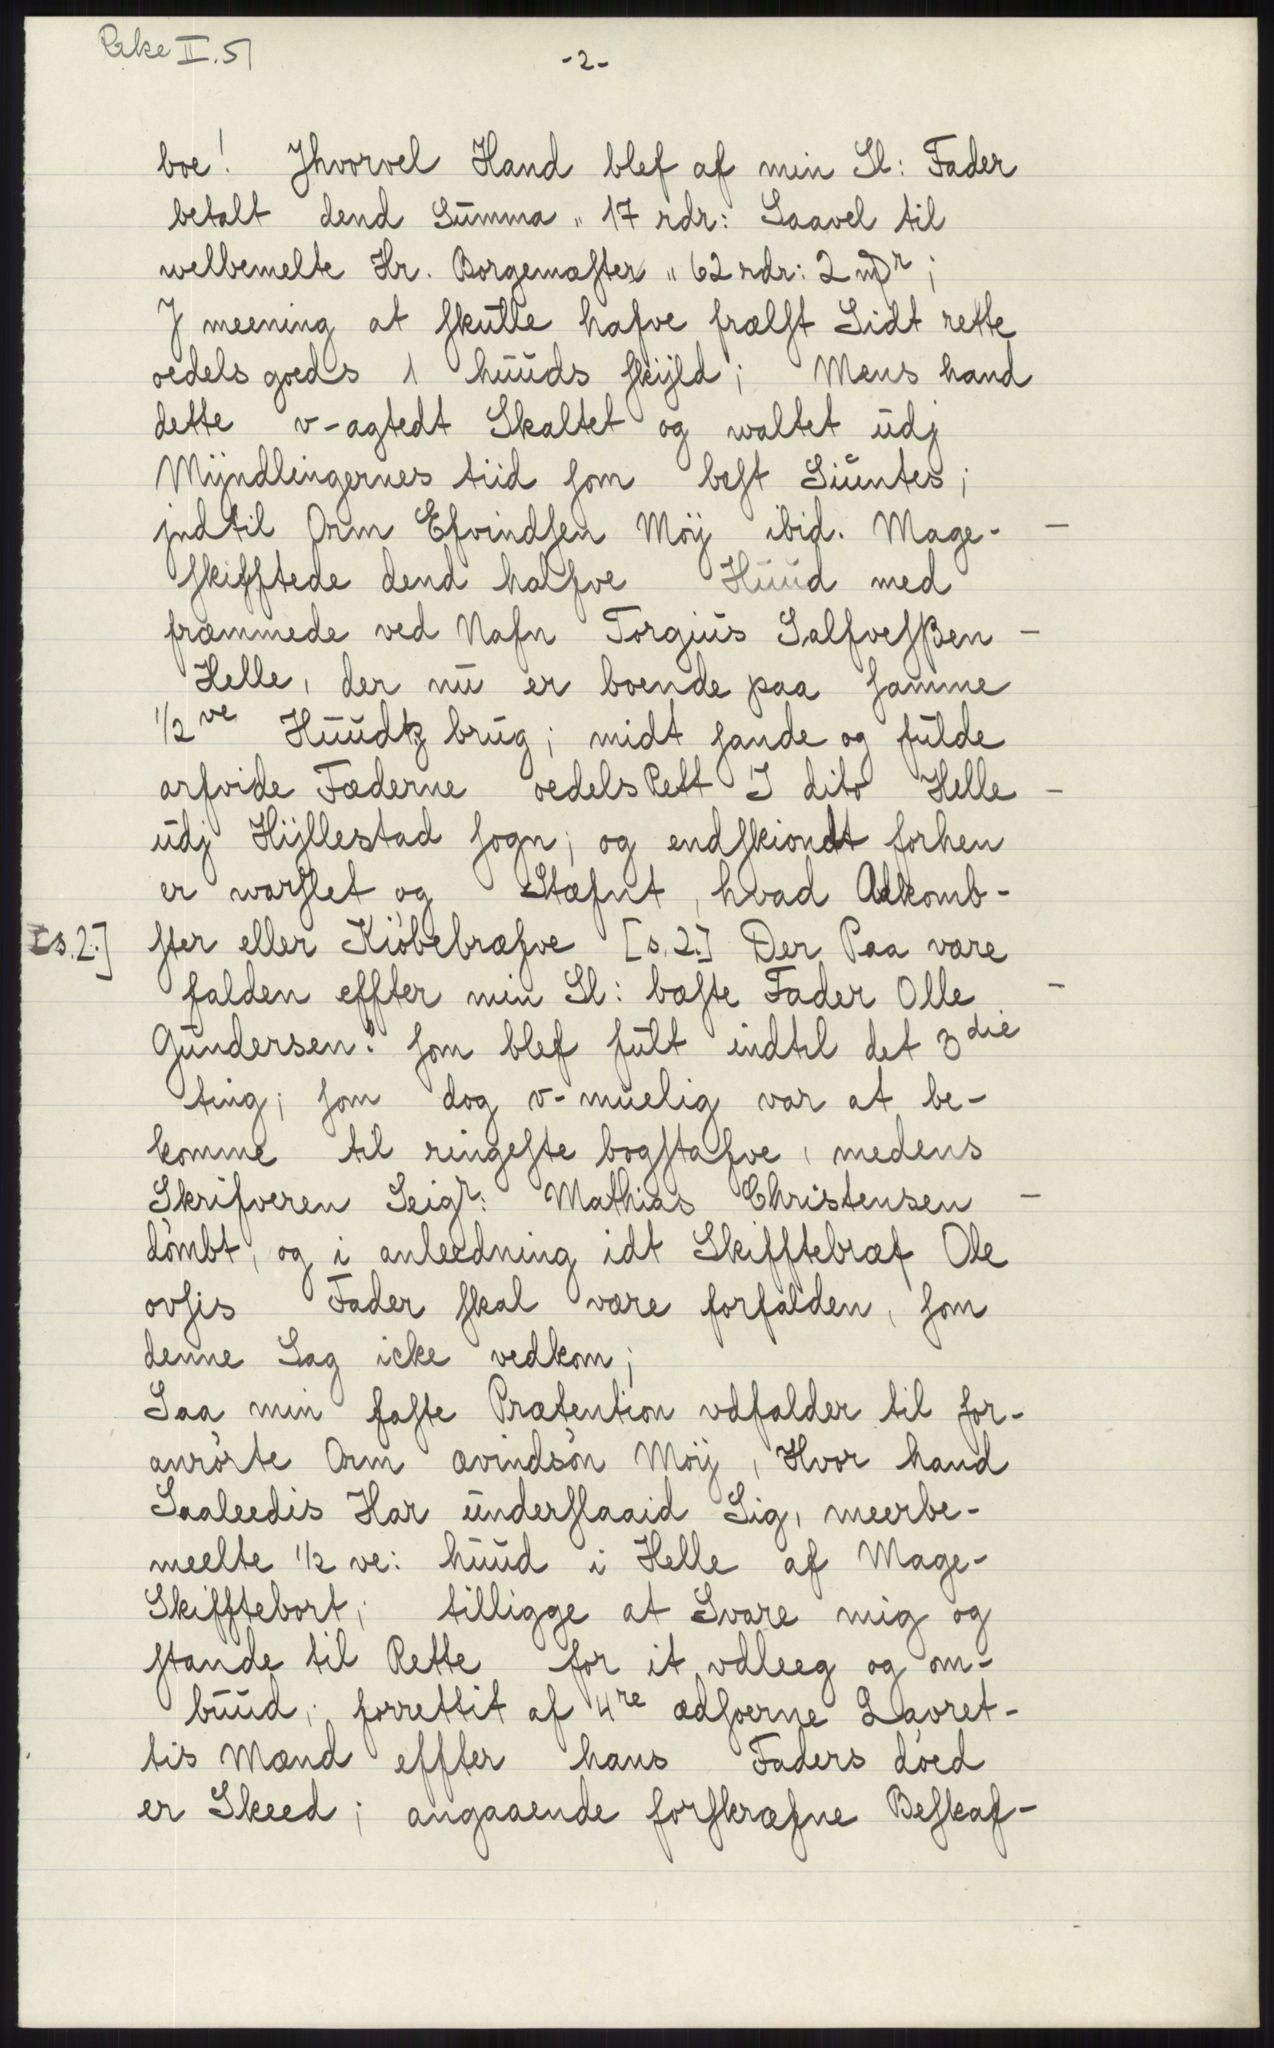 Rike II.5
-2-
boe! Jhvorvel Hand blef af min Sl: Fader
betalt dend Summa „ 17 rdr: Saavel til
welbemelte Hr. Borgemæster „ 62 rdr: 2 mr;
J meening at skulle hafve frælst Sidt rette
oedels goeds 1 huuds skijld; Mens hand
dette v-agtedt Skaltet og waltet udj
Mijndlingernes tiid som best Siuntes;
jndtil Orm Efvindsen Möij ibid. Mage-
skifftede dend halfve Huud med
fræmmede ved Nafn Torgius Salfvesßen
Helle, der nu er boende paa samme
1/2 ve Huudtz brug; midt sande og fulde
arfvide Fæderne oedels Rett I dito Helle
udj Hijllestad sogn; og endskiondt forhen
er warslet og Stæfnt, hvad Adkomb-
[s.2.] ster eller Kiöbebræfve [s.2.] Der Paa være
falden effter min Sl: bæste Fader Olle
Gundersen: som blef fult indtil det 3die
ting; som dog v-muelig var at be-
komme til ringeste bogstafve, medens
Skrifveren Seigr: Mathias Christensen
dömbt, og i anleedning idt Skifftebræf Ole
ovsis Fader skal være forfalden, som
denne Sag icke vedkom;
Saa min faste Prætention vdfalder til for-
anrörte Orm ævindsön Möij, Hvor hand
Saaleedis Har underslaaid Sig, meerbe-
meelte 1/2 ve: huud i Helle af Mage-
Skifftebort; tilligge at Svare mig og
stande til Rette for it vdleeg og om-
buud; forrettit af 4re ædsoerne Lavret-
tis Mænd effter hans Faders döed
er Skeed; angaaende forskræfne Beskaf-